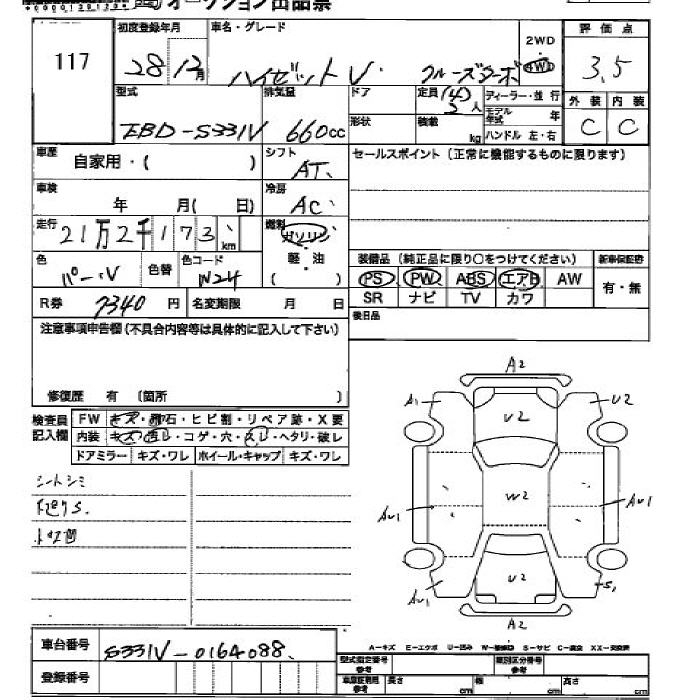 オークション出品票
117
初度登録年月
28 12月
車名・グレード
ハイゼットV クルーズターボ
2WD
4WD
評価点
3.5
型式
EBD-S331V
排気量
660cc
ドア
形状
定員 (4) 2人
積載 kg
ディーラー・並行
モデル年式 年
ハンドル 左・右
外装 内装
C C
車歴 自家用・( )
シフト
AT
セールスポイント(正常に機能するものに限ります)
車検
年 月( 日)
冷房
AC
走行
21万2千173km
燃料
ガソリン
軽・油
( )
色
パール
色替
色コード
W24
装備品(純正品に限り○をつけてください)
新車保証書
PS PW ABS エアB AW
SR ナビ TV カワ
有・無
R券 7340円
名変期限 月 日
後日品
注意事項申告欄(不具合内容等は具体的に記入して下さい)
修復歴 有 〔箇所 〕
検査員記入欄
FW キズ・飛石・ヒビ割・リペア跡・X要
内装 キズ・汚レ・コゲ・穴・スレ・ヘタリ・破レ
ドアミラー キズ・ワレ ホイール・キャップ キズ・ワレ
シートシミ
下廻りS.
トワ凹
A2
A1
U2
U2
W2
AU1
AU1
AU1
U2
S1
A2
車台番号
S331V-0164088
登録番号
A-キズ E-エクボ U-凹み W-補修跡 S-サビ C-腐食 XX-交換済
型式指定番号 参考
類別区分番号 参考
車庫証明用 参考
長さ cm
幅 cm
高さ cm